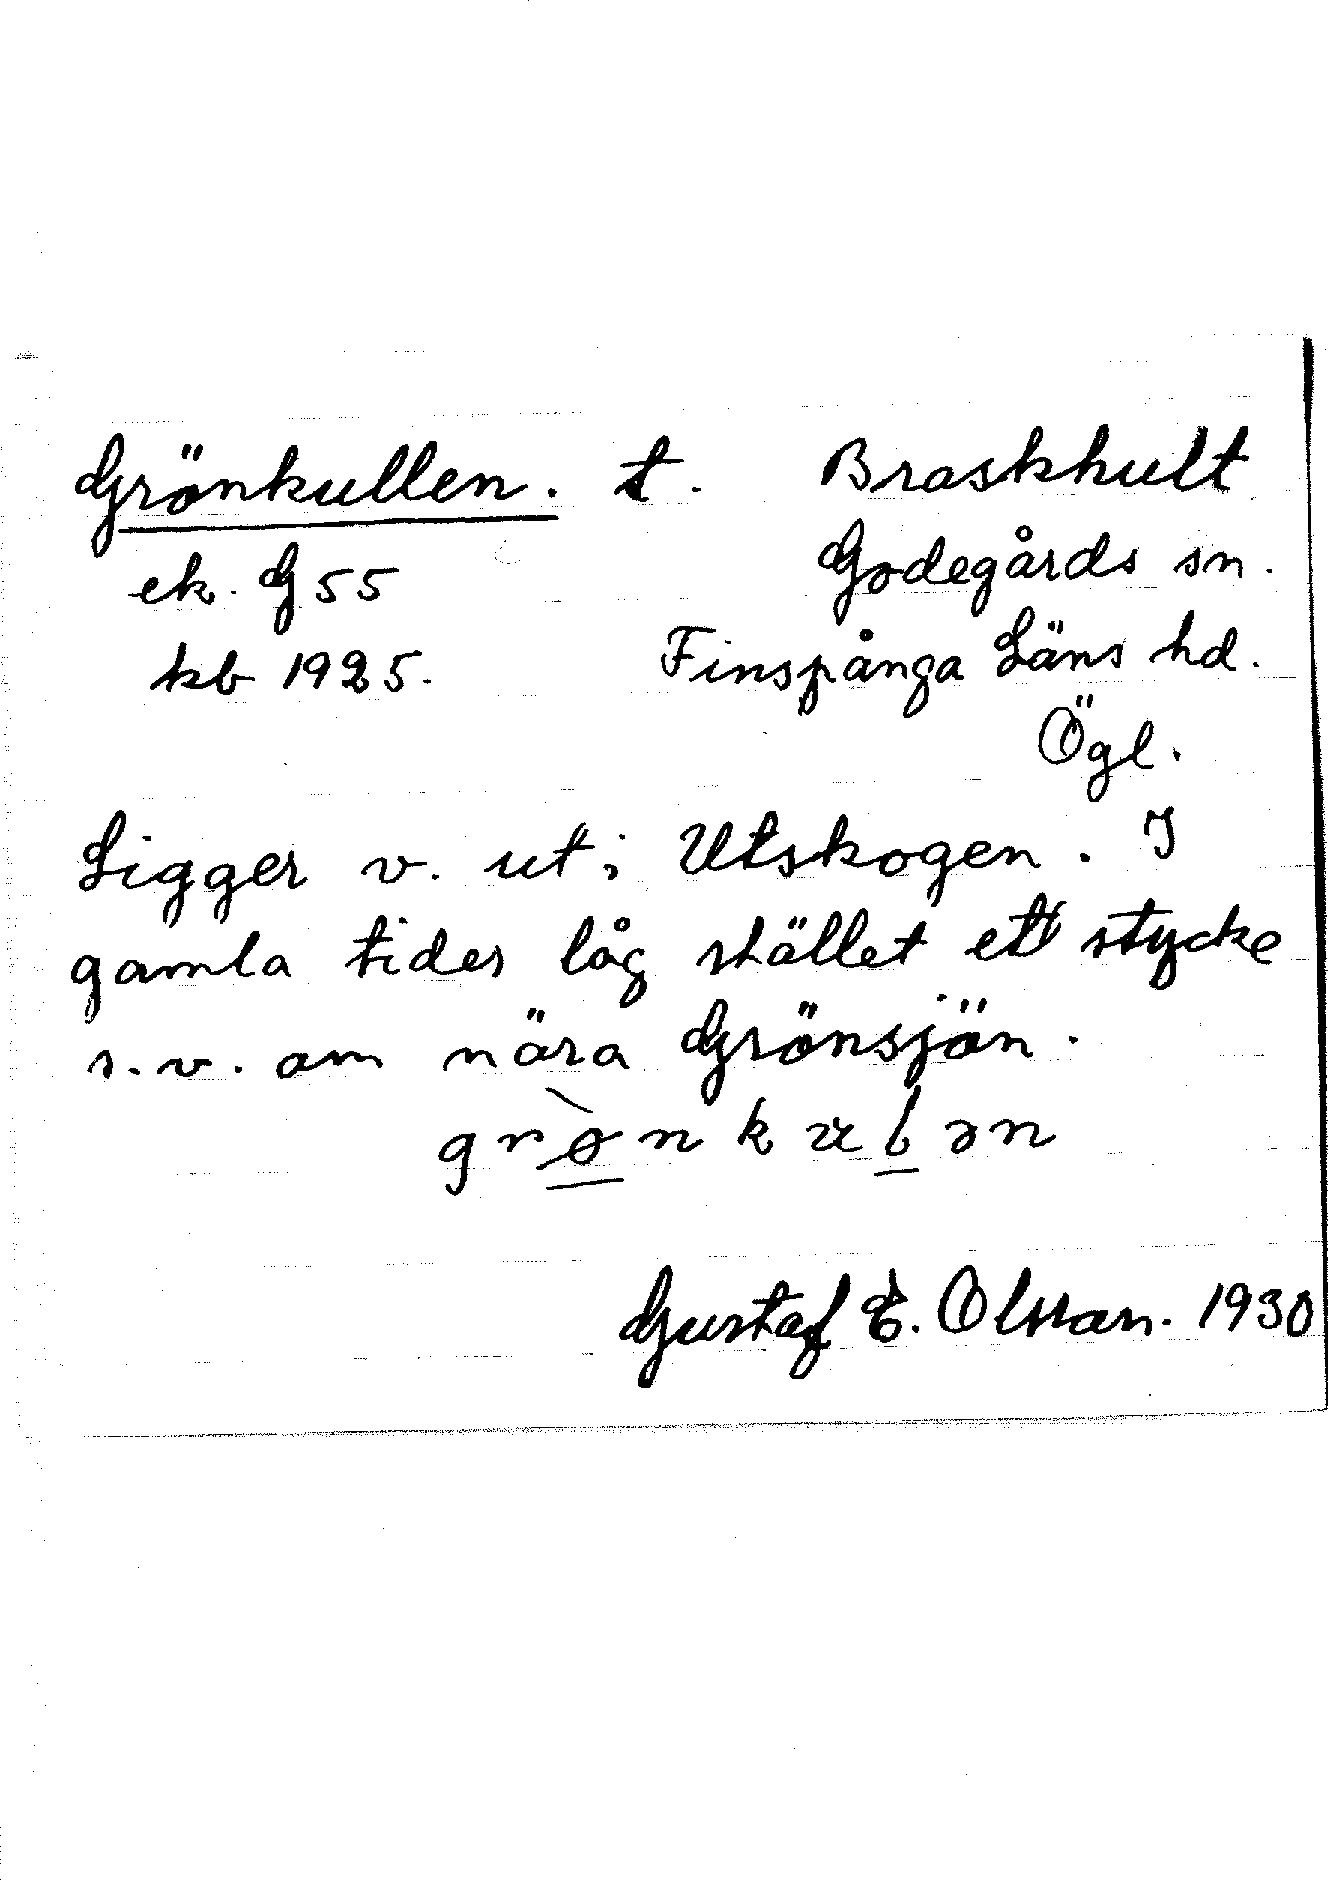 Grönkullen. t. Braskhult
ek. G 55 Godegårds sn.
kb 1925. Finspånga Läns hd.
Ögl.
Ligger v. ut i Utskogen. I
gamla tider låg stället ett stycke
s.v. om nära Grönsjön.
grø̀nkulən
Gustaf E. Olsson. 1930